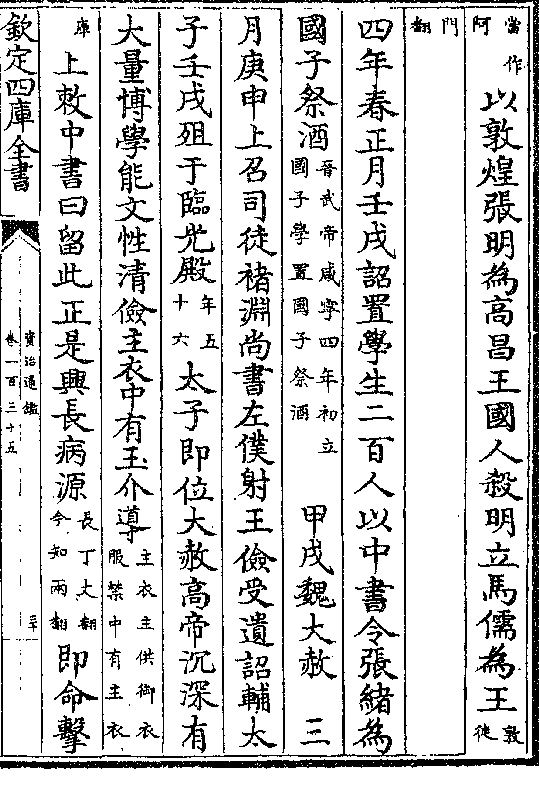 當作阿以敦煌張明為高昌王國人殺明立馬儒為王敦徒
門翻
四年春正月壬戌詔置學生二百人以中書令張緒為
國子祭酒晉武帝咸寧四年初立國子學置國子祭酒甲戌魏大赦 三
月庚申上召司徒褚淵尚書左僕射王儉受遺詔輔太
子壬戌殂于臨光殿年五十六太子即位大赦高帝沉深有
大量博學能文性清儉主衣中有玉介導主衣主供御衣服禁中有主衣
庫上敕中書曰留此正是興長病源長丁丈翻今知兩翻即命擊
欽定四庫全書
資治通鑑
卷一百三十五